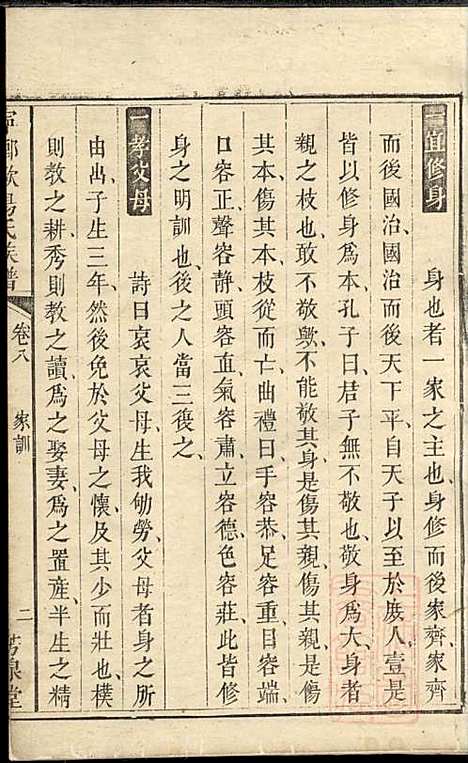 一宜修身
身也者一家之主也身修而後家齊家齊
而後國治國治而後天下平自天子以至於庶人壹是
皆以修身爲本孔子曰君子無不敬也敬身爲大身者
親之枝也敢不敬歟不能敬其身是傷其親傷其親是傷
其本傷其本枝從而亡曲禮曰手容恭足容重目容端
口容正聲容静頭容直氣容肅立容德色容莊此皆修
身之明訓也後之人當三復之
一孝父母
詩曰哀哀父母生我劬勞父母者身之所
由出子生三年然後免於父母之懷及其少而壯也樸
則教之耕秀則教之讀爲之娶妻爲之置產半生之精
歐陽氏族譜
卷八
家訓
二